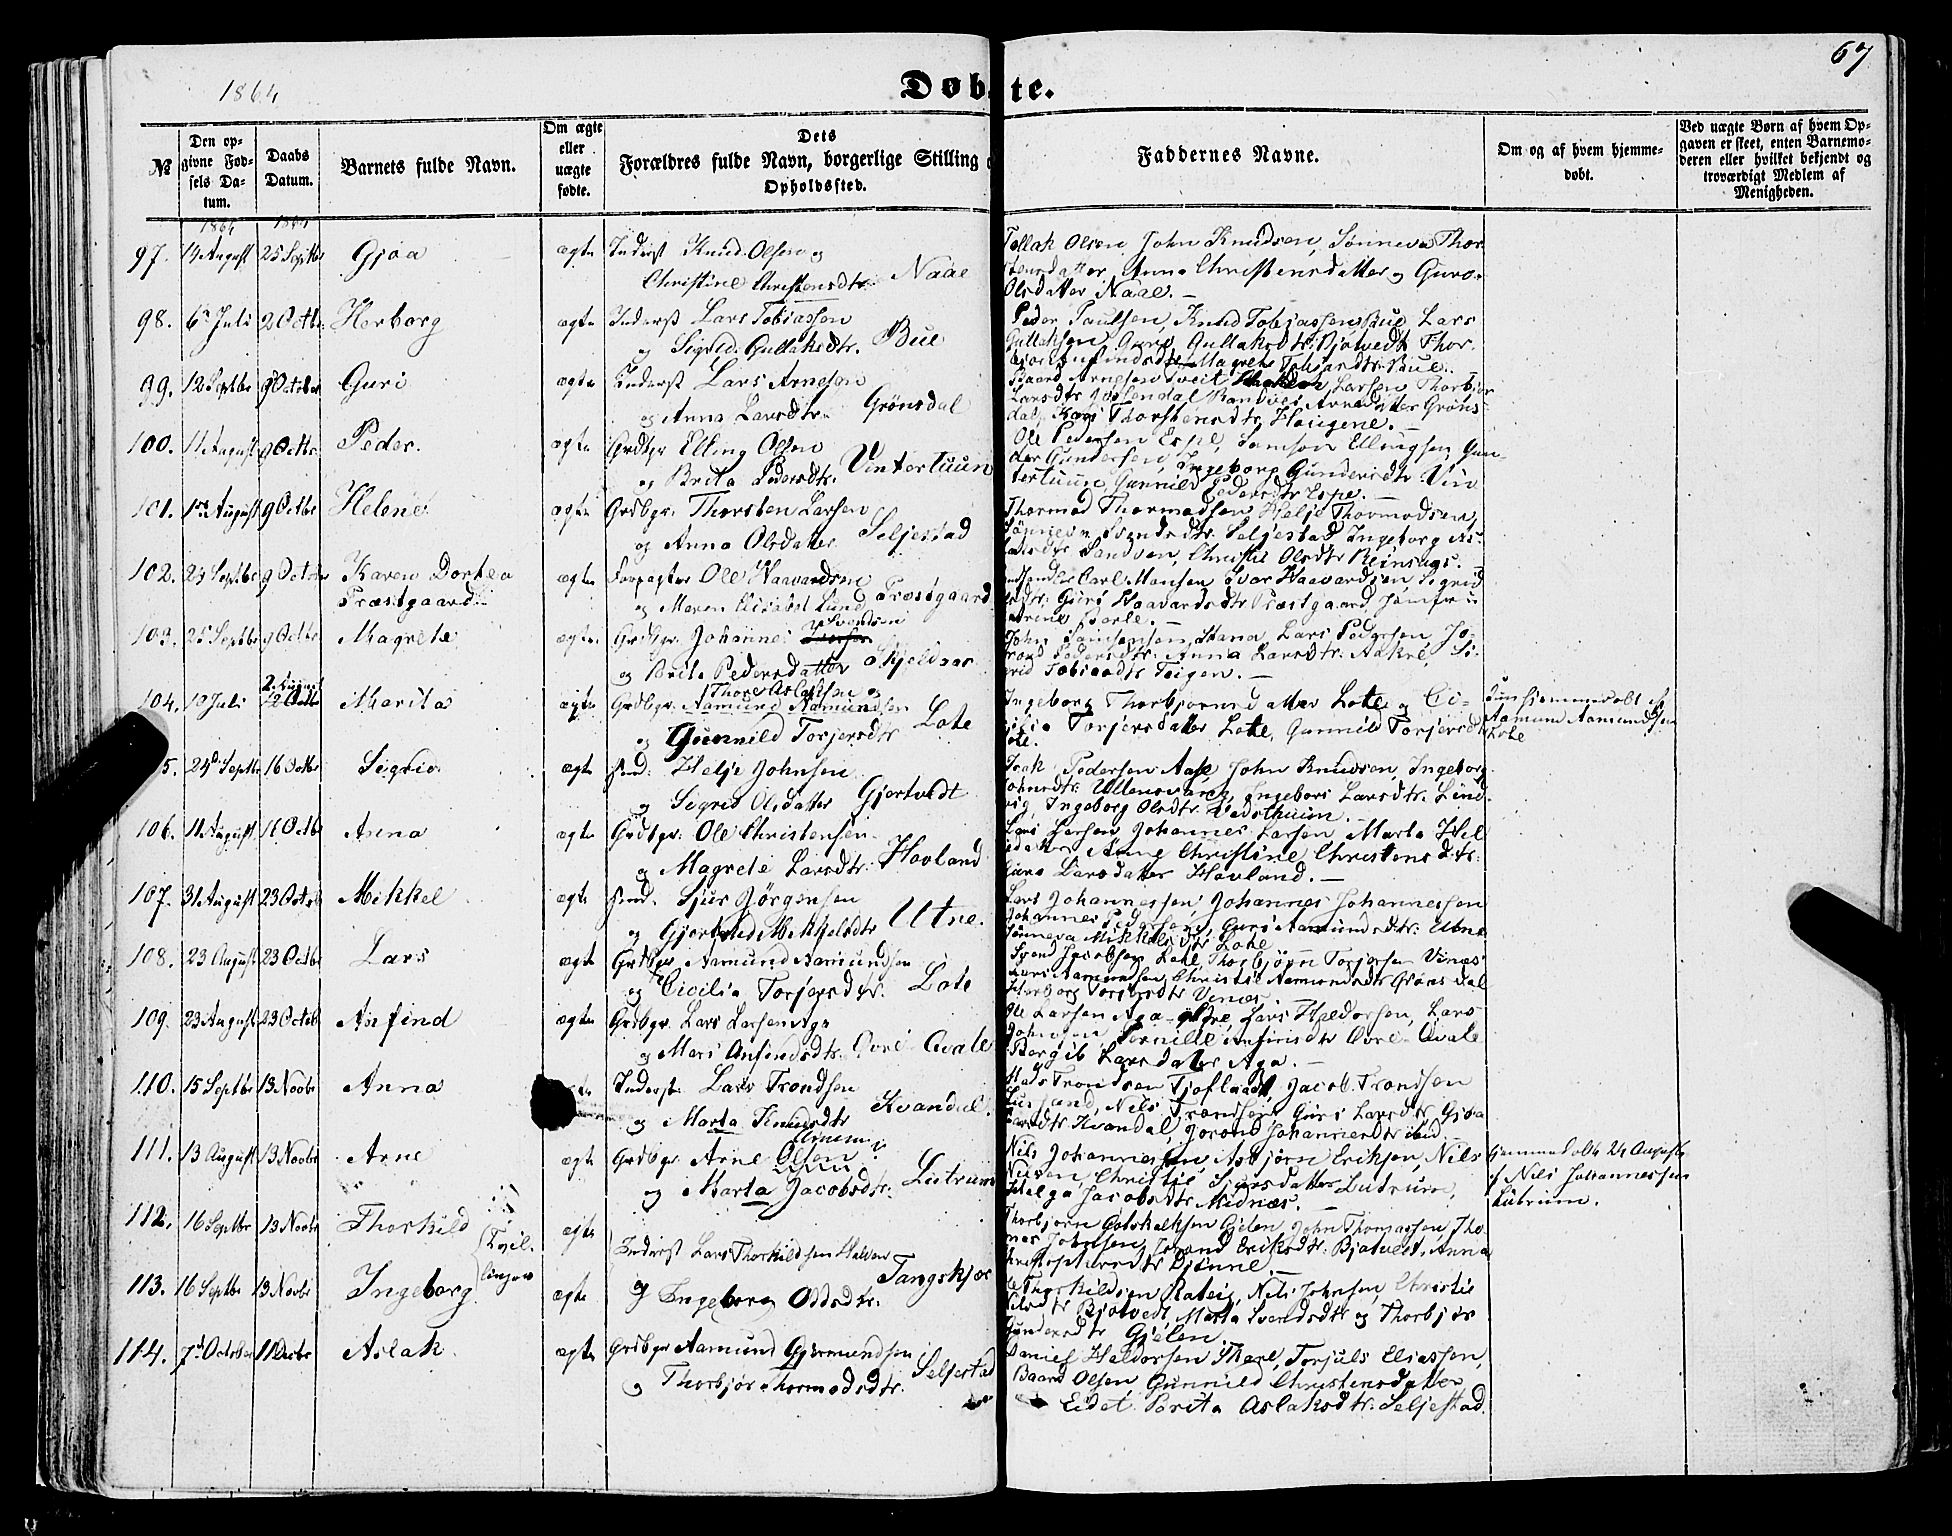 1864
Døbte.
67
№
Den opgivne Fødsels Datum.
Daabs Datum.
Barnets fulde Navn.
Om ægte eller uægte fødte.
Dets Forældres fulde Navn, borgerlige Stilling
Opholdssted.
Faddernes Navne.
Om og af hvem hjemmedøbt.
Ved uægte Børn af hvem Opgaven er skeet, enten Barnemoderen eller hvilket bekjendt og troværdigt Medlem af Menigheden.
1864
97. 14 August 25 Septbr Gjøa ægte Inderst Knud Olsen og
Christine Christensdtr. Naae
Tollak Olsen, John Knudsen, Sønneva Thor
stensdatter, Anna Christensdatter og Guro
Olsdatter Naae.
98. 6 Juli 2 Octbr Herborg ægte Inderst Lars Tobiassen
og Sigrid Gullaksdtr. Bue
Peder Paulsen, Knud Tobiassen Bue, Lars
Gullaksen, Guro Gullaksdtr. Bjotvedt Thor
Magrete Tobiasdtr. Bue.
99. 12 Septbr 9 October Guri ægte Inderst Lars Arnesen
og Anna Larsdtr. Grønsdal
Baard Arnesen Tveit Larsen, Thorbjør
Larsdtr Jøsendal Randvei Arnedatter Grøns
dal, Kari Thorstensdtr. Haugene.
100. 11 August 9 Octbr. Peder. ægte Grdbgr Elling Olsen
og Brita Pedersdtr. Vintertuun
Ole Pedersen Espe, Samson Ellingsen, Gun-
der Gundersen, Ingeborg Gundersdtr. Vin
tertuun Gunnild Pedersdtr Espe.
101. August 9 Octbr Helene ægte Grdbgr. Thorsten Larsen
og Anna Olsdatter Seljestad
Thormod Thormodsen, Helje Thormodsen,
Svendsdtr. Seljestad Ingeborg As-
Sandven, Christie Olsdtr Reinsnos.
102. 23 Septbr 9 Octobr Karen Dorthea
Præstgaard ægte Forpagter Ole Haavardsen
og Maren Elisabet Lund Præstgaard
Carl Monsen Ivar Haavardsen Sigrid
Guro Haavardsdtr. Præstgaard, Jomfru
103. 25 Septbr 9 Octbr Magrete ægte. Grdbgr. Johannes Iversen Svendsen
og Brita Pedersdatter Skjeldnes
John Samsonsen Mana, Lars Pedersen, Jo-
rond Pedersdtr. Anna Larsdtr. Aakre, Si-
Tobiasdtr Teigen.
104. 10 Juli 2 Octbr Marita ægte Grdbgr. Aamund Aamundsen Thore Aslaksen og
og Gunnild Torjersdtr Lote
Ingeborg Thorbjørnsdatter Lote og Ci-
cilia Torjersdatter Lote, Gunnild Torjersdtr
Lote.
hjemmedøbt af
Aamund Aamundsen
Lote
5. 24 Septbr 16 Octbr Sigrid ægte Helje Johnsen
og Sigrid Olsdatter Gjertvedt
Pedersen Aase, John Knudsen, Ingeborg
Johnsdtr: Ullensvang, Ingebori Larsdtr. Lind-
vig, Ingeborg Olsdtr.
106. 11 August 16 Octbr Anna ægte Grdbgr. Ole Christensen
og Magrete Larsdtr. Hovland
Lars Larsen, Johannes Larsen Marta Hel
Anne Christine Christensdtr:
Guro Larsdatter Hovland.
107. 31 August 23 Octob Mikkel ægte Sjur Jørgensen
og Gjertrud Mikkelsdtr Utne.
Lars Johannessen, Johannes Johannessen
Johannes Pedersen, Guri Aamundsdtr: Utne
Sønneva Mikkelsdtr Lote
108. 23 August 23 Octbr Lars ægte Grdbgr Aamund Aamundsen
og Cicilia Torjersdtr. Lote
Svend Jacobsen Lote, Thorbjørn Torjersen Vines
Lars Aamundsen, Christie Aamundsdtr Grønsdal
Herborg Torjersdtr Vines
109. 23 August 23 Octobr Anfind ægte Grdbgr. Lars Larsen Aga
og Mari Anfindsdtr. Øvre Qvale
Ole Larsen Aga Lars Haldorsen, Lars
Johnsen, Pernille Anfinsdtr Øvre-Qvale
Bergit Larsdatter Aga.
110. 15 Septbr 13 Novbr Anna Inderst Lars Trondsen
og Marta Knudsdtr Kvandal.
Mads Trondsen Tjoflaadt, Jacob Trondsen
Nils Trondsen Guri Larsdtr. Gjøa
Kvandal, Jorond Johannesdtr ibid
111. 13 August 13 Novbr Arne ægte Grdbgr Arne Olsen
og Marta Jacobsdtr. Lutrum
Nils Johannessen, Asbjørn Eriksen, Nils
Christie Sjursdatter Lutrum,
Helga Jacobsdtr Midnæs.
hjemmedøbt 24 August
af Nils Johannessen
Lutrum.
112. 16 Septbr 13 Novbr Thorkild ægte
Tvil-
linger
Inderst Lars Thorkildsen
Tangskjær
og Ingeborg Oddsdtr.
Thorbjørn Gotskalksen Gjelen, John Thomassen, Tho
mas Johnsen, Jorond Eriksdtr. Bjotvedt, Anna
113. 16 Septbr 13 Novbr Ingeborg ægte
Thorkildsen Nils Johnsen, Christie
Nilsdtr Bjotvedt, Marta Svendsdtr og Thorbjør
Gundersdtr Gjelen.
114. 7 October 11 Decbr Aslak ægte Grdbgr Aamund Gjermundsen
og Thorbjør Thormodsdtr. Seljestad
Daniel Haldorsen Torjuls Eliassen,
Baard Olsen Gunnild Christensdatter
Eidet. Brita Aslaksdtr. Seljestad.